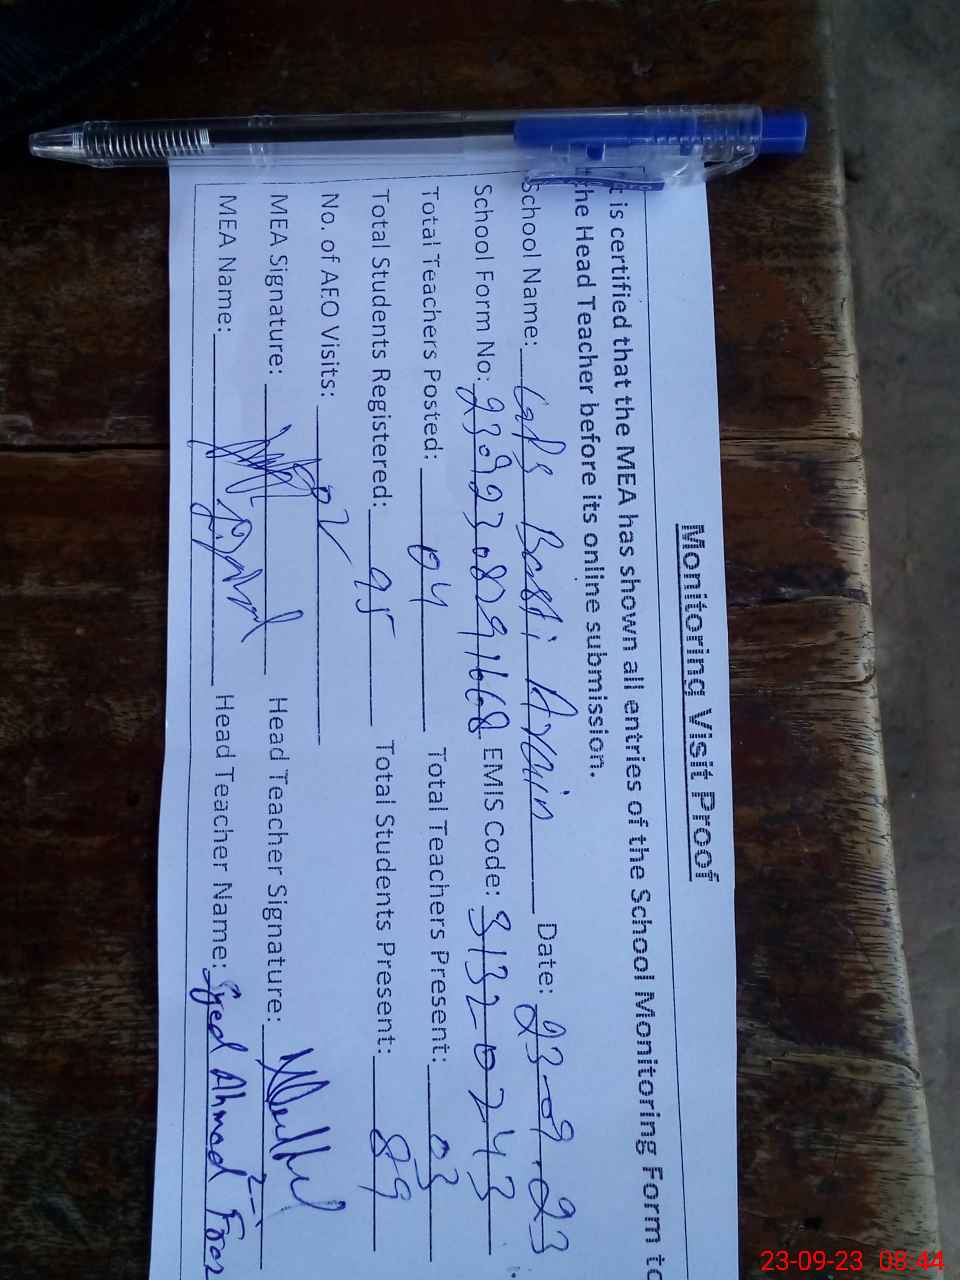 Monitoring Visit Proof
t is certified that the MEA has shown all entries of the School Monitoring Form to
the Head Teacher before its online submission.
School Name: Gaps Basti Date: 23-09-23
School Form No: 23092308291668 EMIS Code: 3132-0743
Total Teachers Posted: 04 Total Teachers Present: 03
Total Students Registered: 95 Total Students Present: 89
No. of AEO Visits: 02
MEA Signature: Head Teacher Signature:
MEA Name: Head Teacher Name: Syed Ahmad
23-09-23 08:44